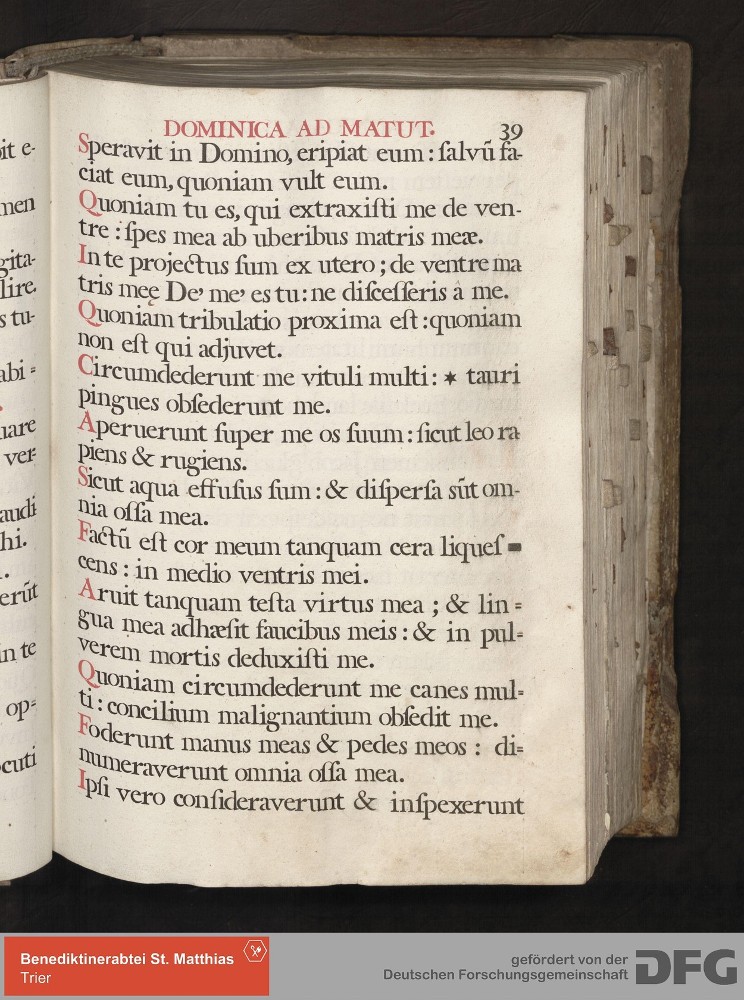 it e-
men
gita-
lire.
s tu-
abi =
uare
ver-
audi
hi.
erũt
in te
op=
ocuti
DOMINICA AD MATUT. 39
Speravit in Domino, eripiat eum : ſalvũ fa-
ciat eum, quoniam vult eum.
Quoniam tu es, qui extraxiſti me de ven-
tre : ſpes mea ab uberibus matris meæ.
In te projectus ſum ex utero ; de ventre ma
tris meę De' me' es tu : ne diſceſſeris à me.
Quoniam tribulatio proxima eſt : quoniam
non eſt qui adjuvet.
Circumdederunt me vituli multi : * tauri
pingues obſederunt me.
Aperuerunt ſuper me os ſuum : ſicut leo ra
piens & rugiens.
Sicut aqua effuſus ſum : & diſperſa sũt om-
nia oſſa mea.
Factũ eſt cor meum tanquam cera liqueſ =
cens : in medio ventris mei.
Aruit tanquam teſta virtus mea ; & lin =
gua mea adhæſit faucibus meis : & in pul=
verem mortis deduxiſti me.
Quoniam circumdederunt me canes mul=
ti : concilium malignantium obſedit me.
Foderunt manus meas & pedes meos : di=
numeraverunt omnia oſſa mea.
Ipſi vero conſideraverunt & inſpexerunt
Benediktinerabtei St. Matthias
Trier
gefördert von der
Deutschen Forschungsgemeinschaft
DFG